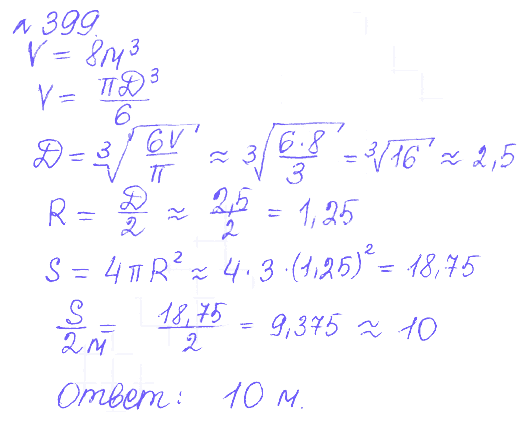 № 399.
V = 8м³
V = πD³/6
D = ∛(6V/π) ≈ ∛(6·8/3) = ∛16 ≈ 2,5
R = D/2 ≈ 2,5/2 = 1,25
S = 4πR² ≈ 4·3·(1,25)² = 18,75
S/2м = 18,75/2 = 9,375 ≈ 10
Ответ: 10 м.